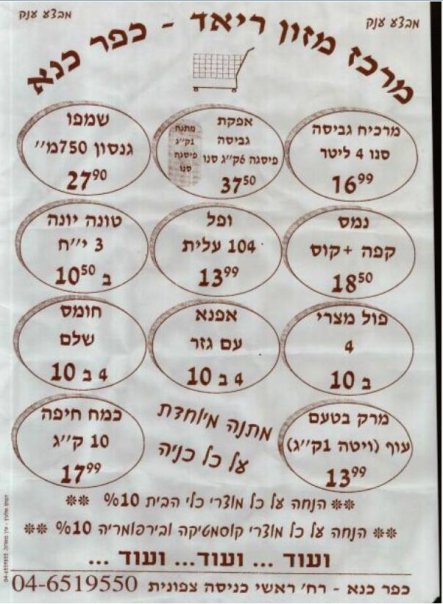 מבצע ענק
מבצע ענק
מרכז מזון ריאד - כפר כנא
מרכיח גביסה
סנו 4 ליטר
16⁹⁹
אפקת
גביסה
פיסגה 6ק״ג סנו
37⁵⁰
מתנה
1ק״ג
פיסגה
סנו
שמפו
גנסון 750מ״
27⁹⁰
נמס
קפה +קוס
18⁵⁰
ופל
104 עלית
13⁹⁹
טונה יונה
3 י״ח
ב 10⁵⁰
פול מצרי
4
ב 10
אפנא
עם גזר
4 ב 10
חומס
שלם
4 ב 10
מרק בטעם
עוף (ויטה 1ק״ג)
13⁹⁹
מתנה מיוחדת
על כל כניה
כמח חיפה
10 ק״ג
17⁹⁹
** הנחה על כל מוצרי כלי הבית 10% **
** הנחה על כל מוצרי קוסמטיקה ובירפומריה 10% **
ועוד ... ועוד... ועוד ...
כפר כנא - רח׳ ראשי כניסה צפונית 04-6519550